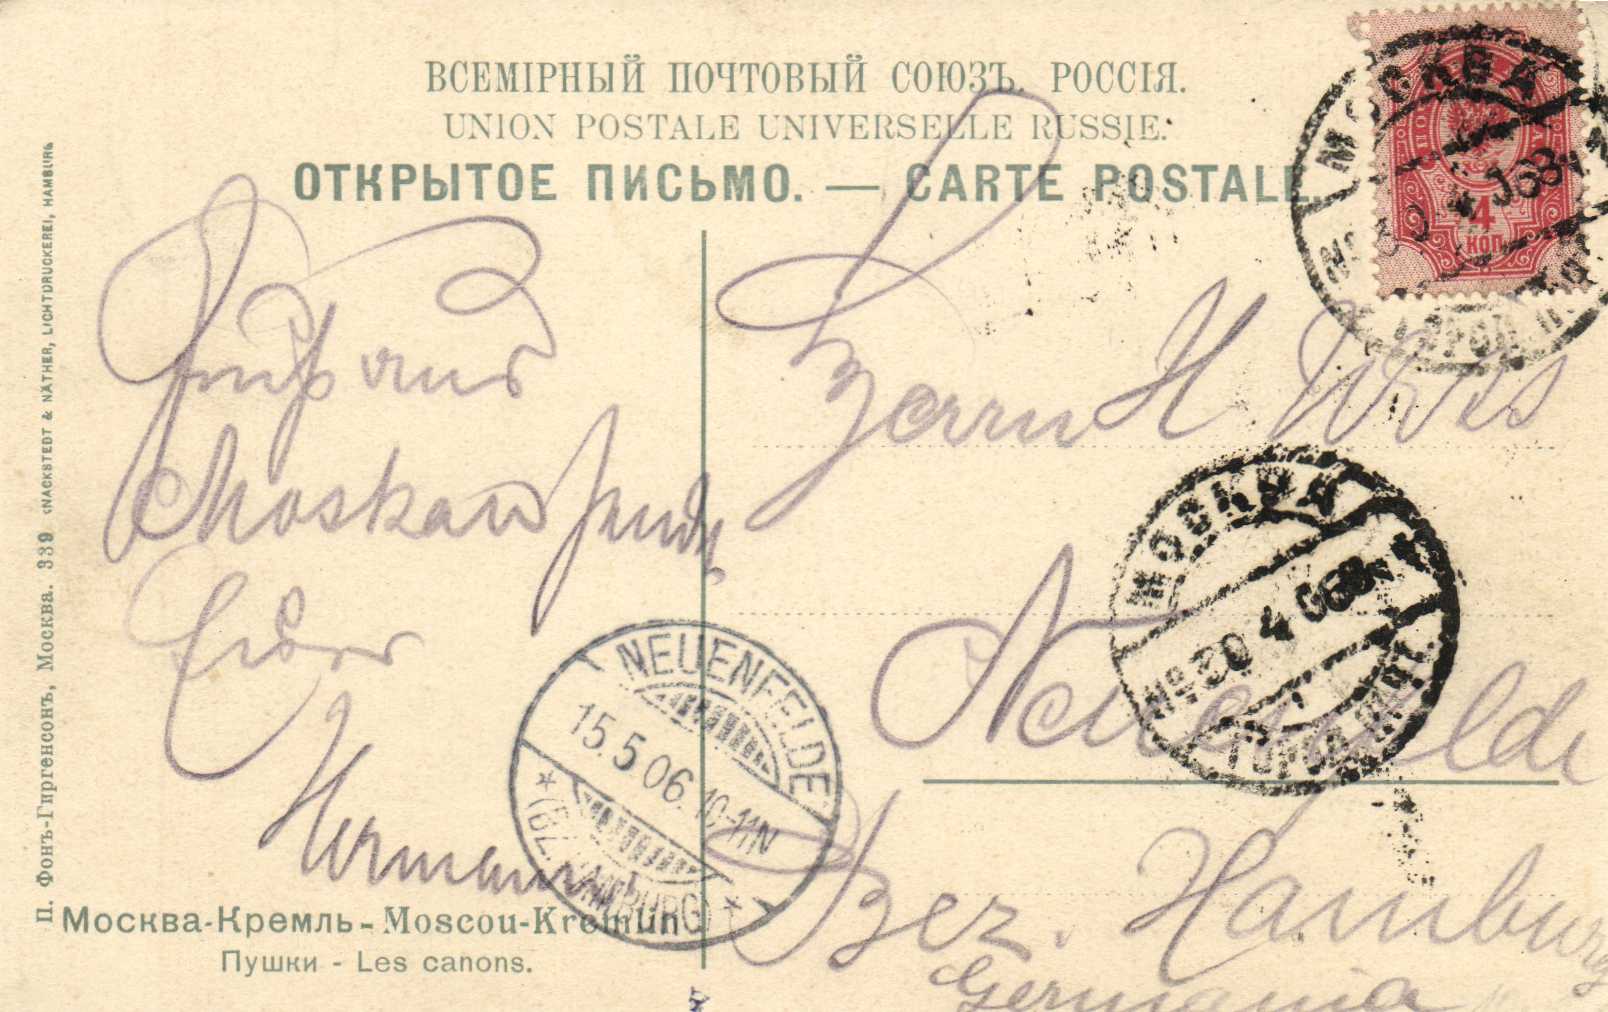 ВСЕМІРНЫЙ ПОЧТОВЫЙ СОЮЗЪ. РОССІЯ.
UNION POSTALE UNIVERSELLE RUSSIE.
ОТКРЫТОЕ ПИСЬМО. — CARTE POSTALE.
4
КОП
МОСКВА
30 4 06
Gruß aus
Moskau
Euer
Hermann
Herrn H
Neuenfelde
Bez. Hamburg
Germania
МОСКВА
30 4 06
NEUENFELDE
15.5.06. 10-11N
* (BZ. HAMBURG) *
Москва-Кремль - Moscou-Kremlin
Пушки - Les canons.
П. Фонъ-Гиргенсонъ, Москва. 339 (NACKSTEDT & NÄTHER, LICHTDRUCKEREI, HAMBURG